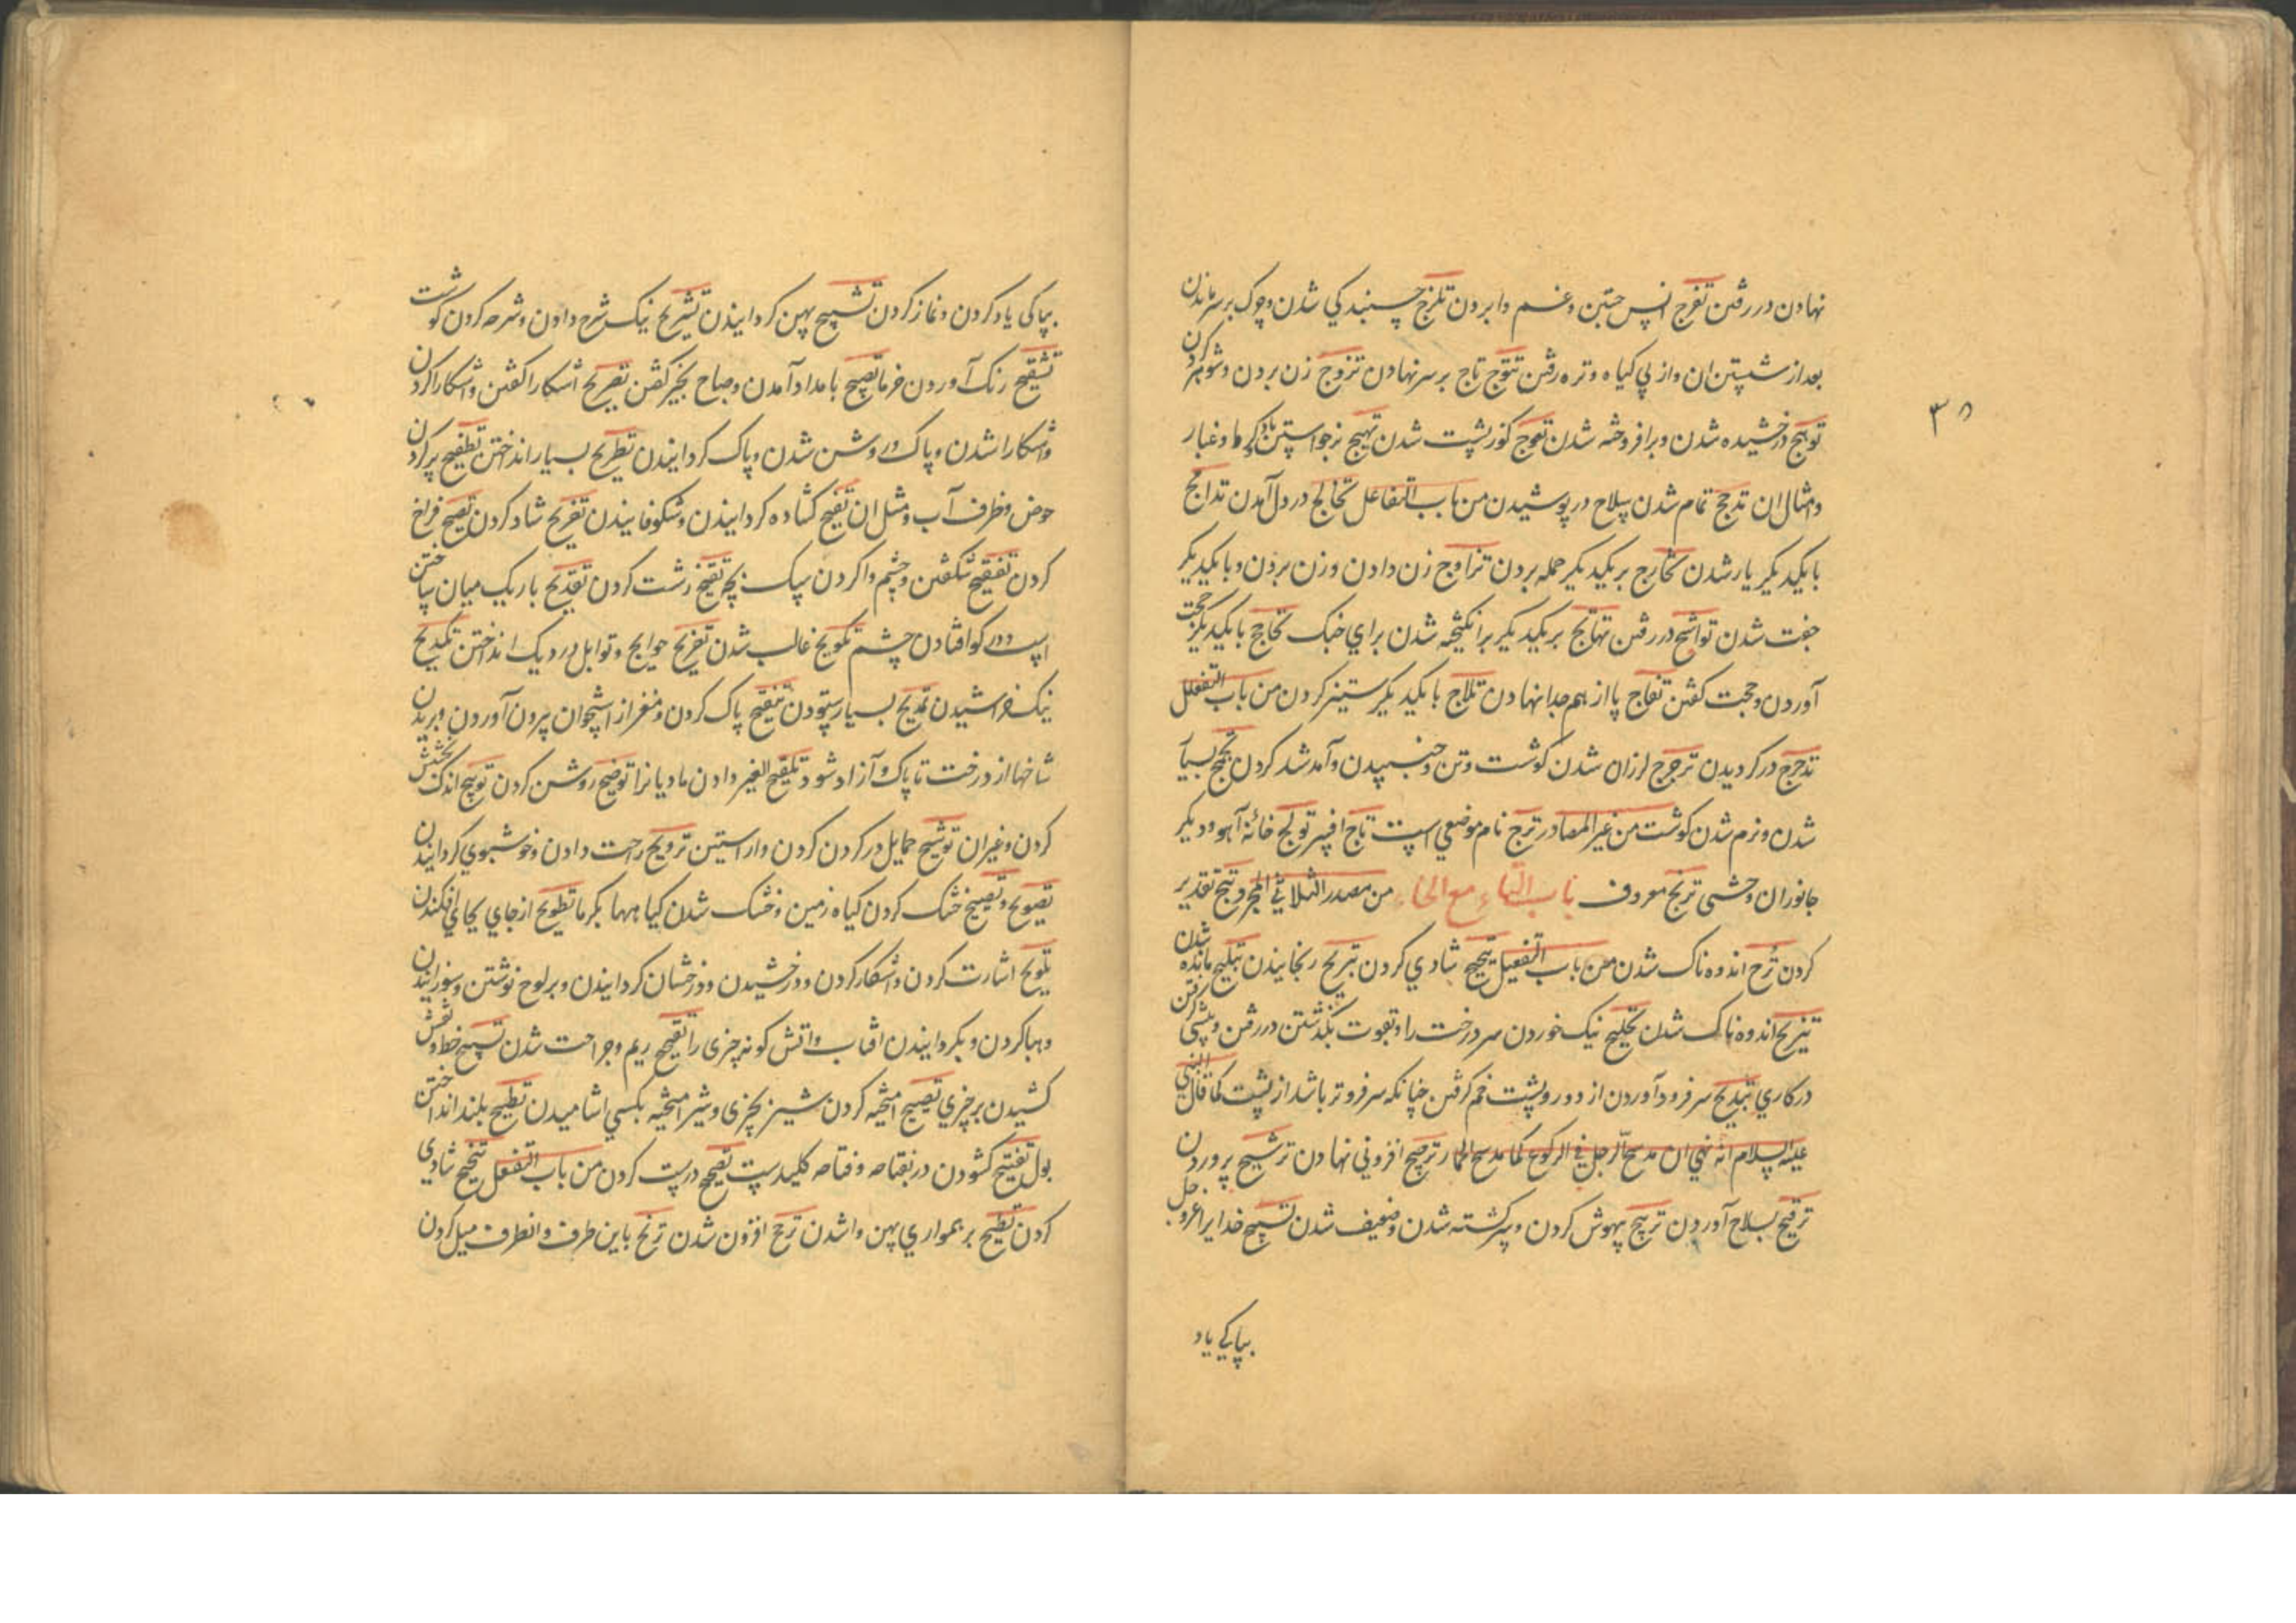 نهادن در رفتن تفرج انس جستن و غم وا بردن تلزج چسبندكي شدن و چوك بر سر ماندن
بعد از شستن ان و از پي كياه و تره رفتن تتوج تاج بر سر نهادن تزوج زن بردن و شوهر كردن
توهج درخشيده شدن و برافروخته شدن تعوج كوز پشت شدن تهيج برخواستن باد و كرما و غبار
و مثال ان تدجج تمام شدن سلاح در پوشيدن من باب التفاعل تخالج در دل آمدن تدامج
با يكديكر يار شدن تخارج بر يكديكر حمله بردن تزاوج زن دادن و زن بردن و با يكديكر
جفت شدن تواشج در رفتن تهايج بر يكديكر برانكيخته شدن براي جنك تحاج با يكديكر حجت
آوردن و حجت كفتن تفاج پا از هم جدا نهادن تلاج با يكديكر ستيز كردن من باب التفعلل
تدحرج در كرديدن ترجرج لرزان شدن كوشت و تن و جنبيدن و آمد شد كردن تبجبج بسيا
شدن و نرم شدن كوشت من غير المصادر ترج نام موضعي است تاج افسر تولج خانه آهو و ديكر
جانوران وحشى ترنج معروف باب التاء مع الحاء من مصدر الثلاثي المجرد تيح تقدير
كردن ترح اندوه ناك شدن من باب التفعيل تبجيح شادي كردن تبريح رنجانيدن تبليح مانده شدن
تتريح اندوه ناك شدن تجليح نيك خوردن سر درخت را و بقوت بكذشتن در رفتن و پيشي كرفتن
در كاري تدبيح سر فرود آوردن از دور و پشت خم كرفتن چنانكه سر فروتر باشد از پشت كما قال النبي
عليه السلام انه نهي ان يدبح الرجل في الركوع كما يدبح الحمار ترجيح افزوني نهادن ترشيح پروردن
ترقيح بصلاح آوردن ترنيح بيهوش كردن و سركشته شدن و ضعيف شدن تسبيح خدايرا عز و جل
بپاكي ياد
بپاكى ياد كردن و نماز كردن تشبيح پهن كردانيدن تشريح نيك شرح دادن و شرحه كردن كوشت
تشقيح رنك آوردن خرما تصبيح بامداد آمدن و صباح بخير كفتن تصريح اشكارا كفتن و اشكارا كردن
و اشكارا شدن و پاك و روشن شدن و پاك كردانيدن تطريح بسيار انداختن تطفيح پر كردن
حوض و ظرف آب و مثل ان تفتيح كشاده كردانيدن و شكوفانيدن تفريح شاد كردن تفسيح فراخ
كردن تفقيح شكفتن و چشم وا كردن سك بچه تقبيح زشت كردن تقديح باريك ميان ساختن
اسپ و در كو افتادن چشم تكويح غالب شدن تقزيح حوايج و توابل در ديك انداختن تكديح
نيك خراشيدن تمديح بسيار ستودن تنقيح پاك كردن و مغز از استخوان بيرون آوردن و بريدن
شاخها از درخت تا پاك و آزاد شود تلقيح الفير دادن ماديانرا توضيح روشن كردن توتيح اندك بخشش
كردن و غير ان توشيح حمايل در كردن كردن و اراستن ترويح راحت دادن و خوشبوي كردانيدن
تصويح و تصييح خشك كردن كياه زمين و خشك شدن كياهها بكرما تطويح از جاي بجاي افكندن
تلويح اشارت كردن و اشكار كردن و درخشيدن و درخشان كردانيدن و بر لوح نوشتن و سوزانيدن
و بها كردن و بكردانيدن افتاب و اتش كونه چيزى را تقييح ريم و جراحت شدن تسييح خط و نقش
كشيدن بر چيزي تضييح اميخته كردن شير بچيزى و شير اميخته بكسي اشاميدن تطميح بلند انداختن
بول تفتيح كشودن در بفتاحه و فتاحه كليدست تصحيح درست كردن من باب التفعل تبجح شادي
كردن تبطح بر همواري پهن وا شدن ترجح افزون شدن ترنح باين طرف و انطرف ميل كردن